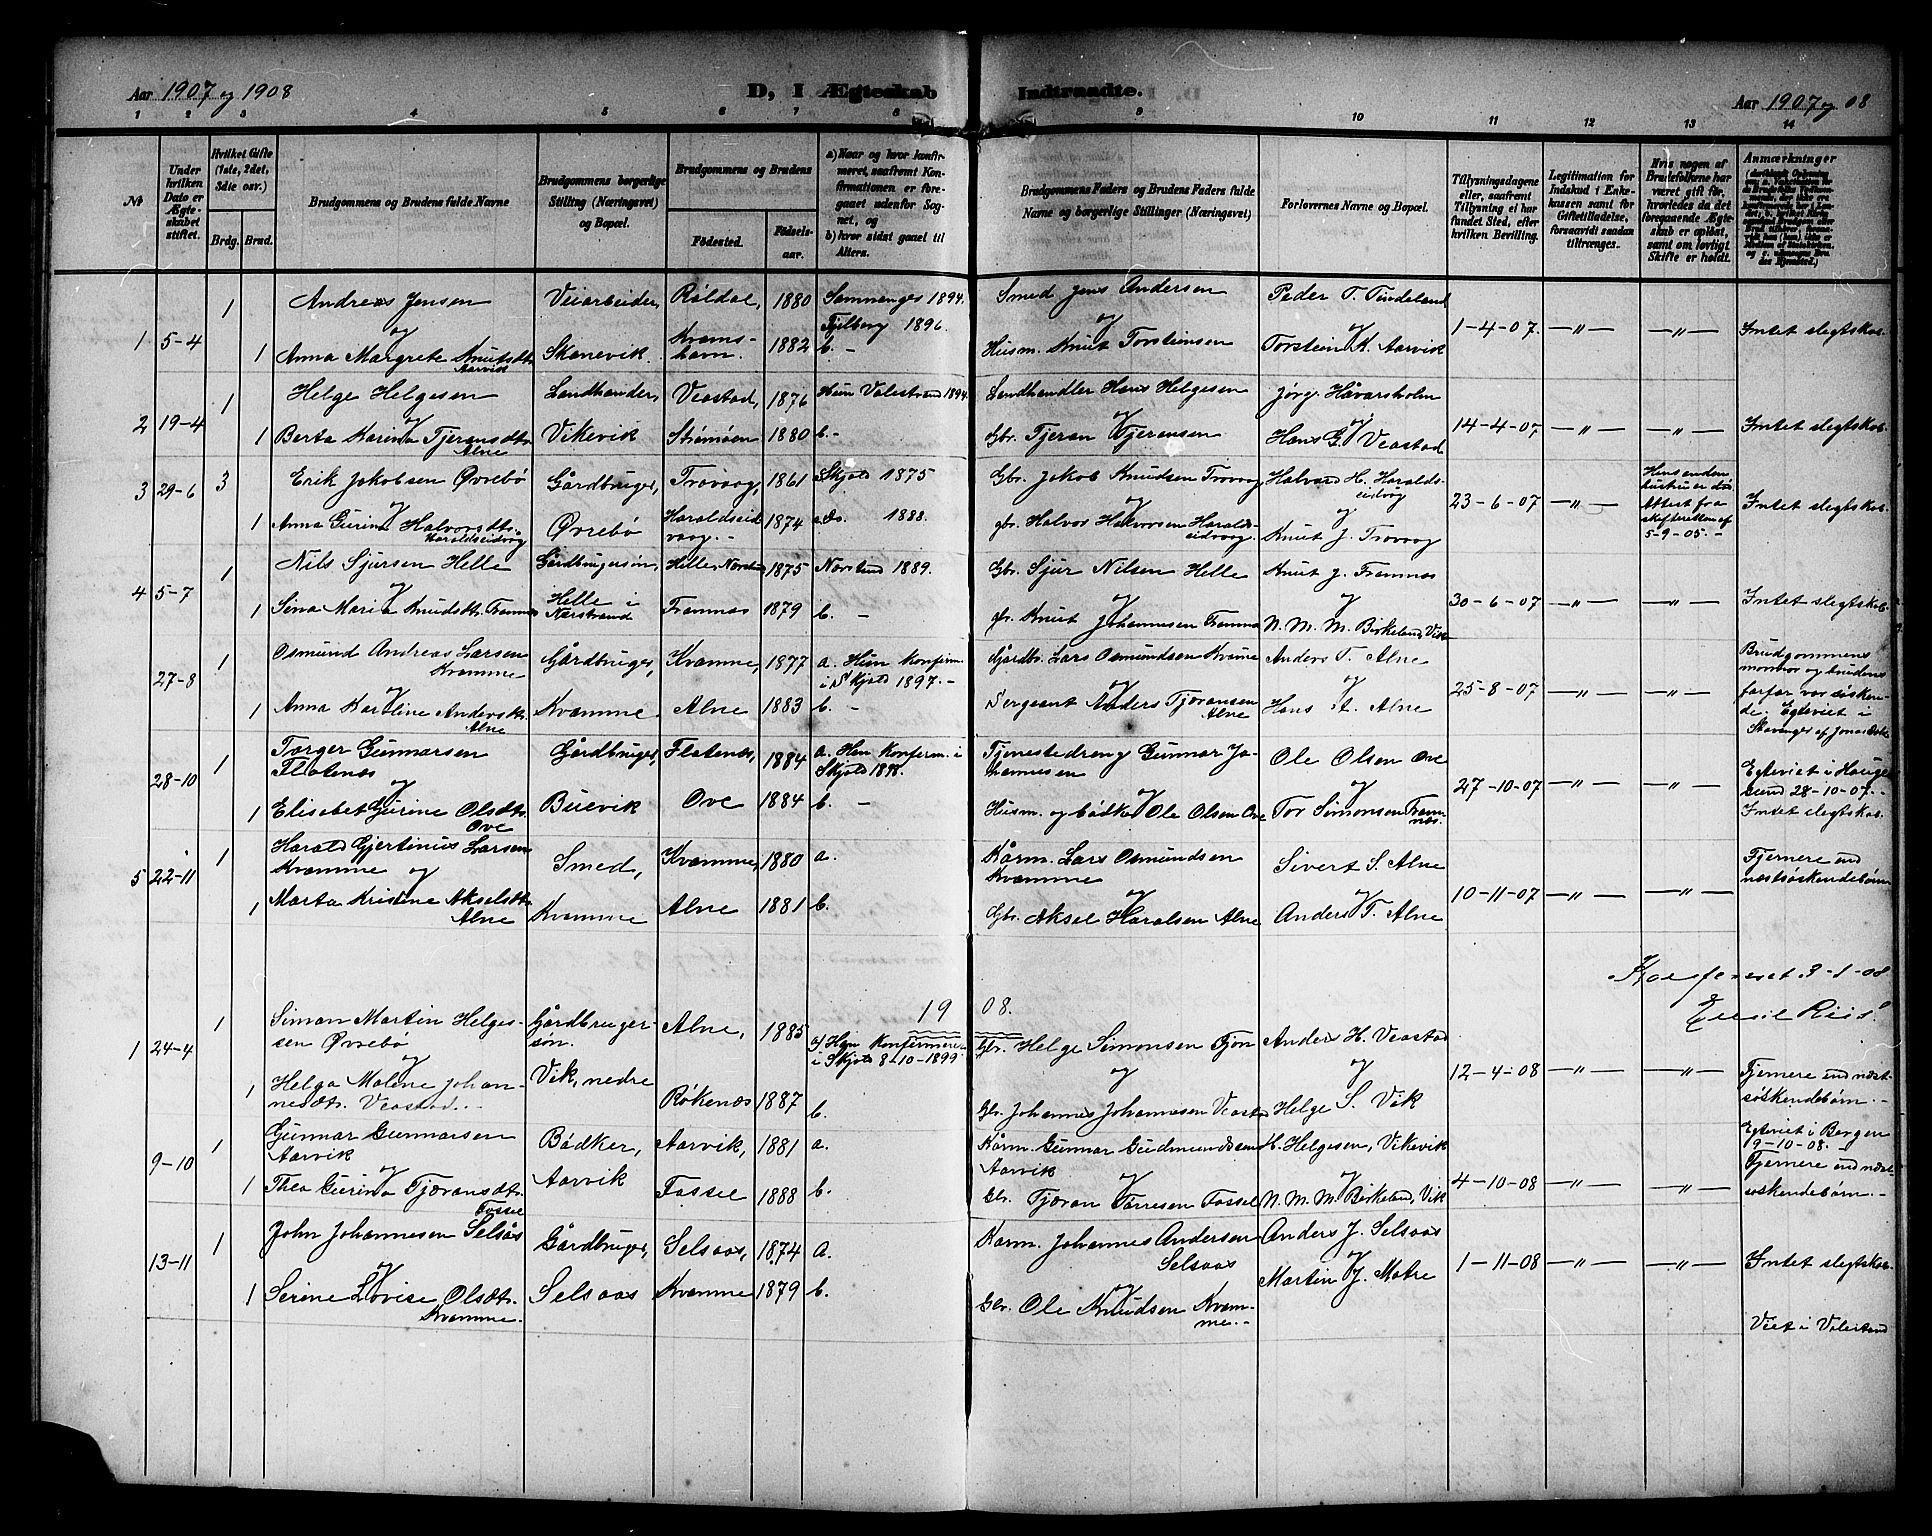 Aar 1907 og 1908
D, I Ægteskab Indtraadte.
Aar 1907 og 08
1 2 3 4 5 6 7 8 9 10 11 12 13 14
№
Under hvilken Dato er Ægteskabet stiftet.
Hvilket Gifte (1ste, 2det, 3die osv.)
Brdg. Brud.
Brudgommens og Brudens fulde Navne
Brudgommens borgerlige Stilling (Næringsvei) og Bopæl.
Brudgommens og Brudens
Födested.
Födselsaar.
a) Naar og hvor konfirmeret, saafremt Konfirmationen er foregaaet udenfor Sognet, og
b) hvor sidst gaaet til Alters.
Brudgommens Faders og Brudens Faders fulde Navne og borgerlige Stillinger (Næringsvei)
Forlovernes Navne og Bopæl.
Tillysningsdagene eller, saafremt Tillysning ei har fundet Sted, efter hvilken Bevilling.
Legitimation for Indskud i Enkekassen samt for Giftetilladelse, forsaavidt saadan tiltrænges.
Hvis nogen af Brudefolkene har været gift för, hvorledes da det foregaaende Ægteskab er oplöst, samt om lovligt Skifte er holdt.
Anmærkninger
1 5-4 1 Andreas Jensen Veiarbeider, Röldal, 1880 Samnanger 1894. Smed Jens Andersen Peder T. Tindeland 1-4-07 —"— —"— Intet slegtskab.
og Fjelberg 1896. og og
1 Anna Margrete Knutsdtr. Aarvik Skonevik. 1882 b. - Husm. Knut Torsteinsen Torstein K. Aarvik
2 19-4 1 Helge Helgesen Landhandler, Veastad, 1876 Hun Valestrand 1894. Landhandler Hans Helgesen Jörg. Håvarsholm 14-4-07 —"— —"— Intet slegtskab.
og og og
1 Berta Karina Tjeransdtr. Alne Vikevik Strömöen 1880 b.- Gbr. Tjeran Tjeransen Hans G. Veastad
3 29-6 3 Erik Jakobsen Øvrebö Gårdbruger, Trovaag, 1861 Skjold 1875 Gbr. Jakob Knudsen Trovaag Halvard H. Haraldseidvåg 23-6-07 —"— Intet slegtskab.
Attest fra skifteretten af 5-9-05.-
og og og
1 Anna Gurina Halvorsdtr. Haraldseidvåg Øvrebö Haraldseidvaag.- 1874 a. do. 1888. gbr. Halvor Halvorsen Haraldseidvaag. Knut J. Trovaag
4 5-7 1 Nils Sjursen Helle Gårdbrugersön, Helle, Narstrand 1875 Narstrand 1889. Gbr. Sjur Nilsen Helle Knut J. Framnes 30-6-07 —"— —"— Intet slegtskab.
og og og
1 Sina Maria Knudsdtr. Framnes Helle i Narstrand Framnes 1879 b. - Knut Johannesen Framnes N. M. M. Birkeland, Vik
27-8 1 Osmund Andreas Larsen Kvamme Gårdbruger, Kvamme, 1877 a. Hun konfirm. i Skjold 1897.- Gårdbr. Lars Osmundsen Kvame Anders T. Alne 25-8-07 —"— —"— Brudgommens mormor og brudens farfar var söskende. Egteviet i Stavanger af
og og og
1 Anna Karoline Andersdtr. Alne Kvamme. Alne 1883 b. - Sergeant Anders Tjöransen Alne Hans A. Alne
28-10 1 Torger Gunnarsen Flatenæs Gårdbruger, Flatenæs, 1884 a. Hun konfirm. i Skjold 1898. Tjenestedreng Gunnar Johannessen Ole Olsen Ove 27-10-07 —"— —"— Egteviet i Haugesund 28-10-07.-
Intet slegtskab.
og og og
1 Elisabet Gurine Olsdtr. Ove Buevik Ove 1884 b. - Husm. og bödker Ole Olsen Ove Tor Simonsen Framnæs.
5 22-11 1 Harald Gjertinius Larsen Kvamme Smed, Kvamme, 1880 a. Kårm. Lars Osmundsen Kvamme Sivert S. Alne 10-11-07 —"— —"— Fjernere end næstsöskendebörn
og og og
1 Marta Kristine Akselsdtr. Alne Kvamme Alne 1881 b. Gbr. Aksel Haralsen Alne Anders T. Alne
3-1-08
Riis.
1908.
1 24-4 1 Simon Martin Helgessen Øvrebö Gårdbrugersön. Alne, 1885 a) Hun konfirmeret i Skjold 8-10-1899. Gbr. Helge Simonsen Anders H. Veastad 12-4-08 —"— —"— Fjernere end næstsöskendebörn.-
og og og
1 Helga Malene Johannesdtr. Veastad.- Vik, nedre Rökenæs 1887 b. Gbr. Johannes Johannesen Veastad Helge S. Vik
9-10 1 Gunnar Gunnarsen Aarvik Bödker, Aarvik, 1881 a. Kårm. Gunnar Gudmundssen Aarvik H. Helgesen, Vikevik 4-10-08 —"— —"— Egteviet i Bergen 9-10-08.-
Fjernere end næstsöskendebörn.-
og og og
1 Thea Gurina Tjæransdtr. Fossel Aarvik Fossel 1888 b. Gbr. Tjæran Torresen Fossel N. M. M. Birkeland, Vik
13-11 1 John Johannesen Selsås Gårdbruger, Selsaas, 1874 a. Karm. Johannes Andersen Selsaas Anders J. Selsaas 1-11-08 —"— —"— Intet slegtskab.
og og og
1 Serine Lovise Olsdtr. Kvamme. Selsaas Kvamme 1879 b. Gbr. Ole Knudsen Kvamme.- Martin J. Matre
Viet i Valestrand